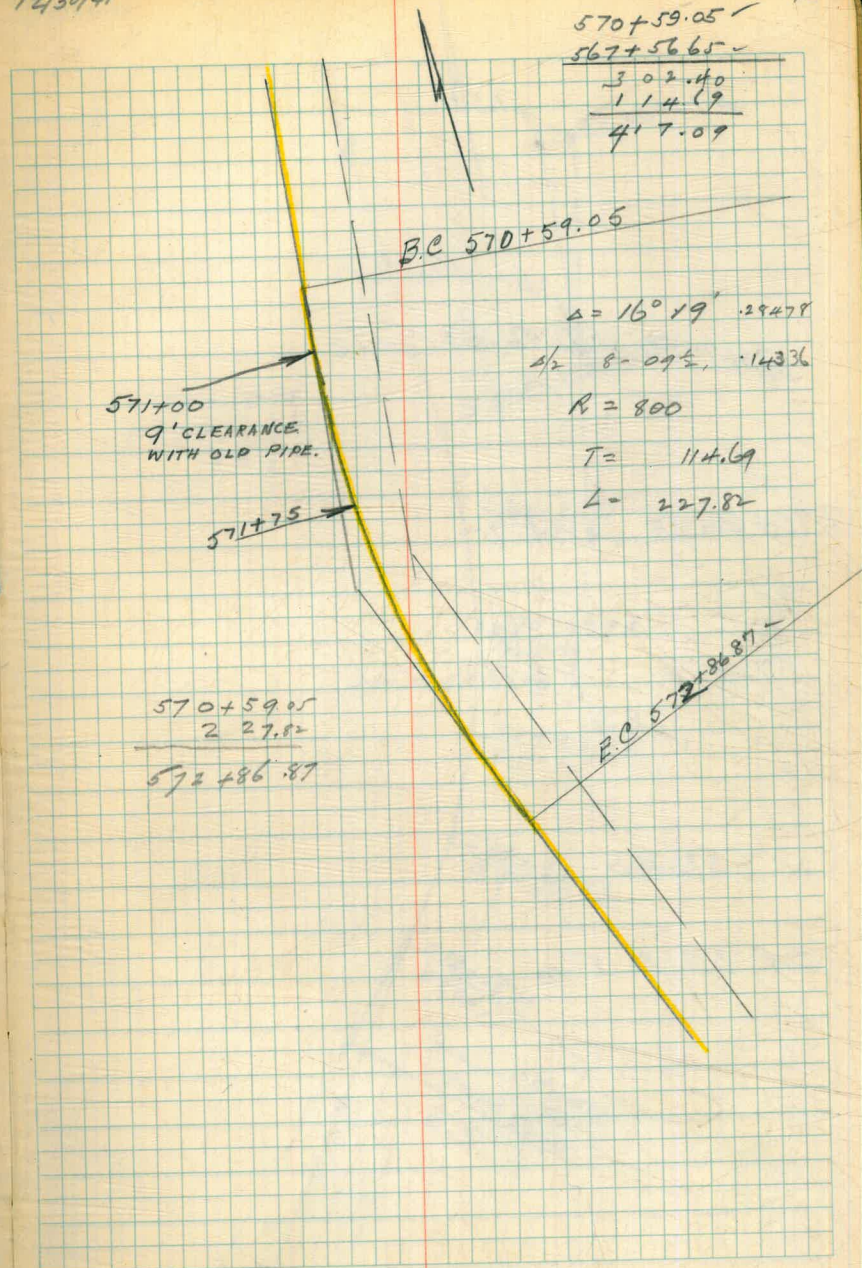 570+59.05 ✓
567+56 65 -
3 0 2 .40
1 1 4.69
4 1 7.09
B.C 570+59.05
Δ = 16° 19' .28478
Δ/2 8-09½, .14336
R = 800
T = 114.69
L = 227.82
571+00
9' CLEARANCE
WITH OLD PIPE.
571+75
E.C 572+86.87 -
570+59.05
2 27.82
572 +86 .87